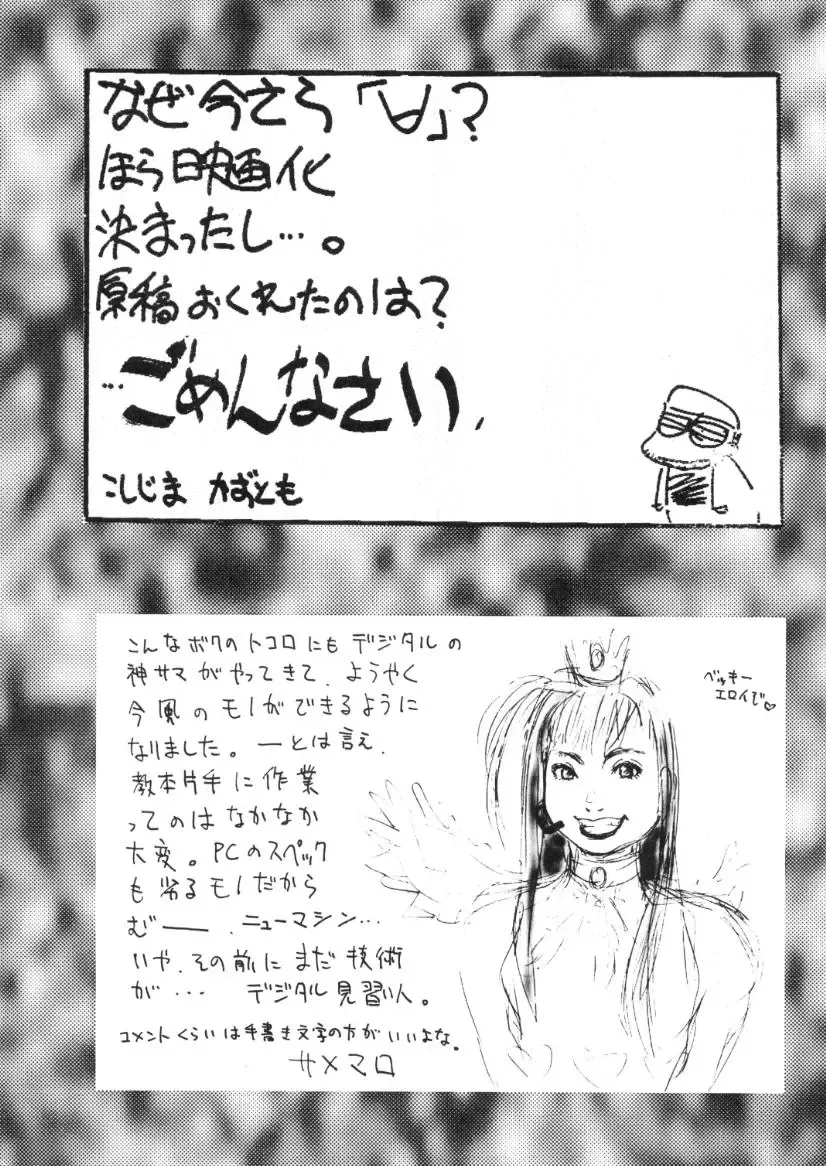 なぜ今さら「∀」?
ほら映画化
決まったし…。
原稿おくれたのは?
…ごめんなさい、
こしじま かずとも
こんなボクのトコロにもデジタルの
神サマがやってきて、ようやく
今風のモノができるように
なりました。ーとは言え、
教本片手に作業
ってのはなかなか
大変。PCのスペック
も劣るモノだから
むー、ニューマシン…
いや、その前にまだ技術
が… デジタル見習い人。
コメントくらいは手書き文字の方がいいよな。
サメマロ
ベッキー
エロイで♡